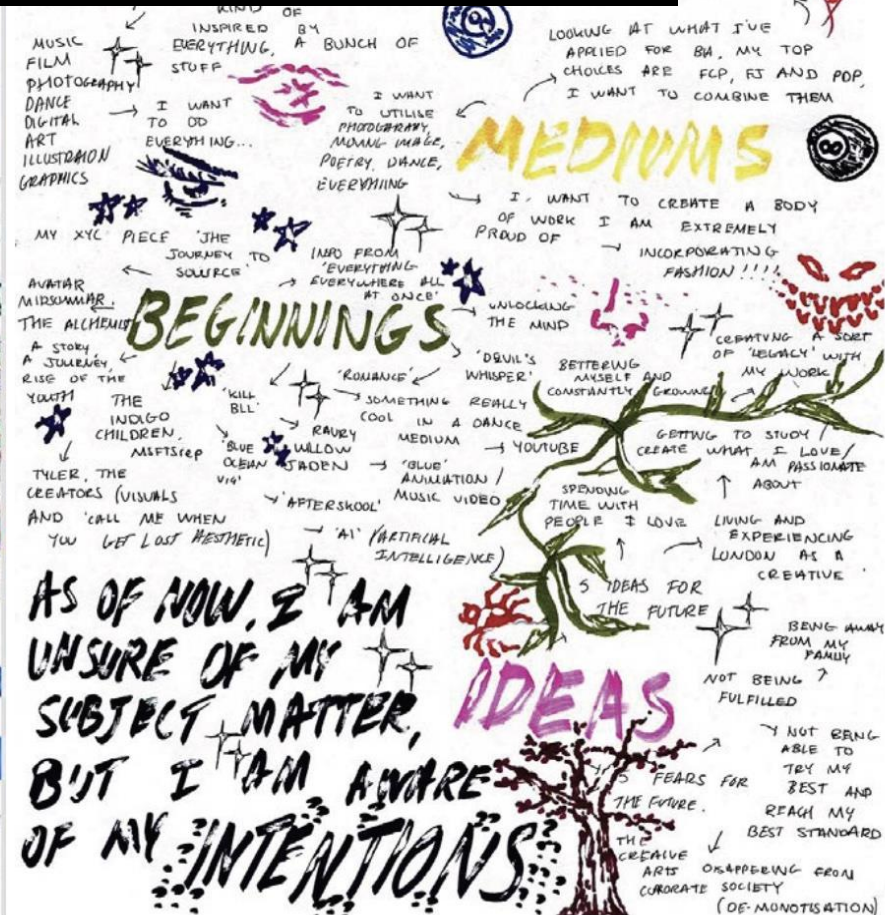 KIND OF
INSPIRED BY
EVERYTHING, A BUNCH OF
STUFF
MUSIC
FILM
PHOTOGRAPHY
DANCE
DIGITAL
ART
ILLUSTRAION
GRAPHICS
I WANT
TO DO
EVERYHING...
I WANT
TO UTILISE
PHOTOGRAPHY,
MOVING IMAGE,
POETRY, DANCE,
EVERYHING
LOOKING AT WHAT I'VE
APPLIED FOR BA, MY TOP
CHOICES ARE FCP, FJ AND PDP,
I WANT TO COMBINE THEM
MEDIUMS
8
I WANT TO CREATE A BODY
OF WORK I AM EXTREMELY
PROUD OF
INCORPORATING
FASHION !!!!
MY XYC PIECE 'THE
JOURNEY TO
SOURCE'
INFO FROM
'EVERYTHING
EVERYWHERE ALL
AT ONCE'
AVATAR
MIDSUMMAR.
THE ALCHEMIST
BEGINNINGS
UNLOCKING
THE MIND
A STORY
A JOURNEY,
RISE OF THE
YOUTH
THE
INDIGO
CHILDREN.
MSFTSrep
'KILL
BLL'
'ROMANCE'
'DEVIL'S
WHISPER'
SOMETHING REALLY
COOL IN A DANCE
MEDIUM
YOUTUBE
RAURY
WILLOW
JADEN
'BLUE
OCEAN
'BLUE'
ANIMATION /
MUSIC VIDEO
TYLER, THE
CREATORS (VISUALS
AND 'CALL ME WHEN
YOU GET LOST AESTHETIC)
'AFTERSKOOL'
'AI' (ARTIFICAL
INTELLIGENCE)
CREATVNG A SORT
OF 'LEGACY' WITH
MY WORK
BETTERING
MYSELF AND
CONSTANTLY GROWING
GETTING TO STUDY /
CREATE WHAT I LOVE/
AM PASSIONATE
ABOUT
SPENDING
TIME WITH
PEOPLE I LOVE
LIVING AND
EXPERIENCING
LONDON AS A
CREATIVE
5 IDEAS FOR
THE FUTURE
AS OF NOW, I AM
UNSURE OF MY
SUBJECT MATTER,
BUT I AM AWARE
OF MY INTENTIONS
IDEAS
BEING AWAY
FROM MY
FAMILY
NOT BEING
FULFILLED
5 FEARS FOR
THE FUTURE.
NOT BEING
ABLE TO
TRY MY
BEST AND
REACH MY
BEST STANDARD
THE
CREAIVE
ARTS DISAPPERING FROM
CORORATE SOCIETY
(DE-MONOTISATION)